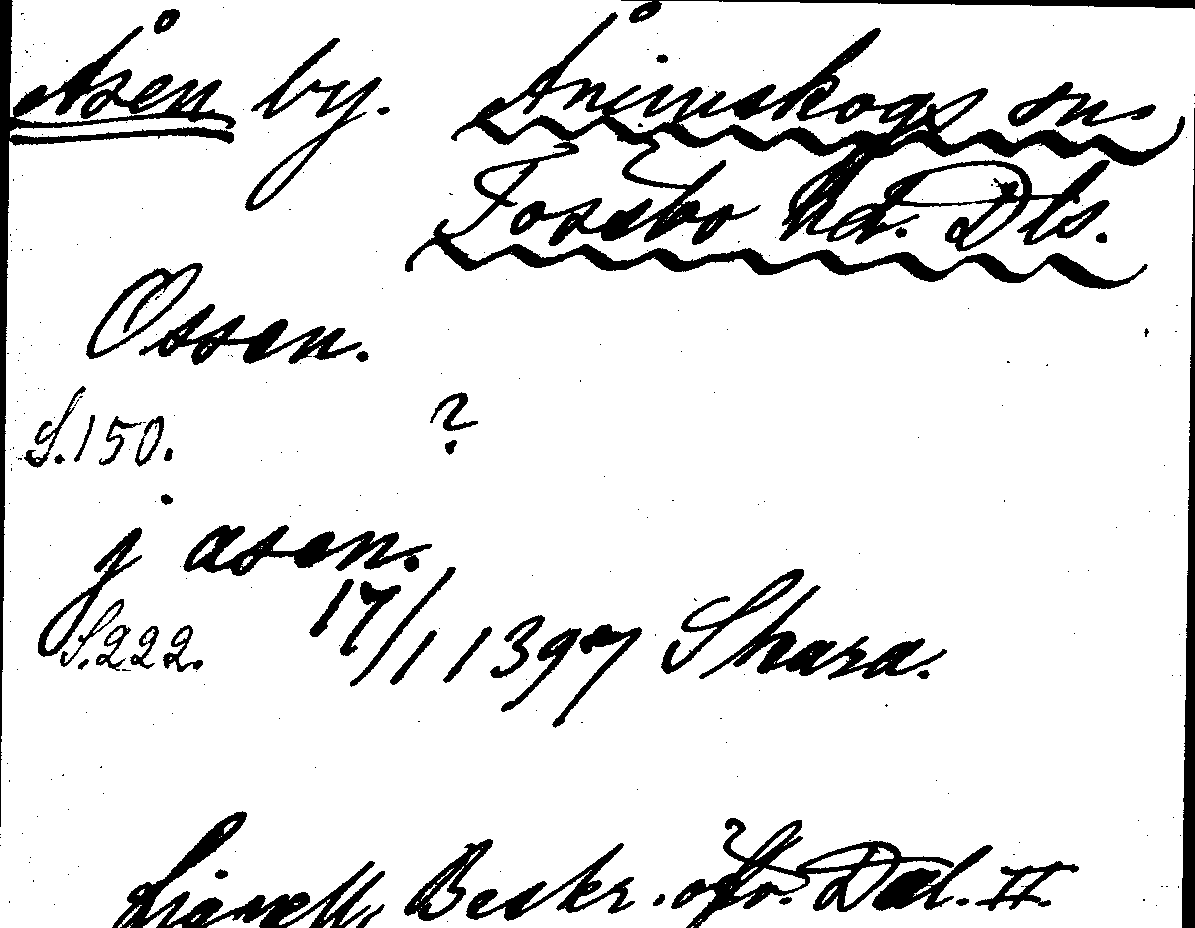 Åsen by. Ånimskogs sn.
Tössbo hd. Dls.
Ossen.
S.150. ?
j asen.
S.222. 17/1 1397 Skara.
Lignell, Beskr. öfv. Dal. II.